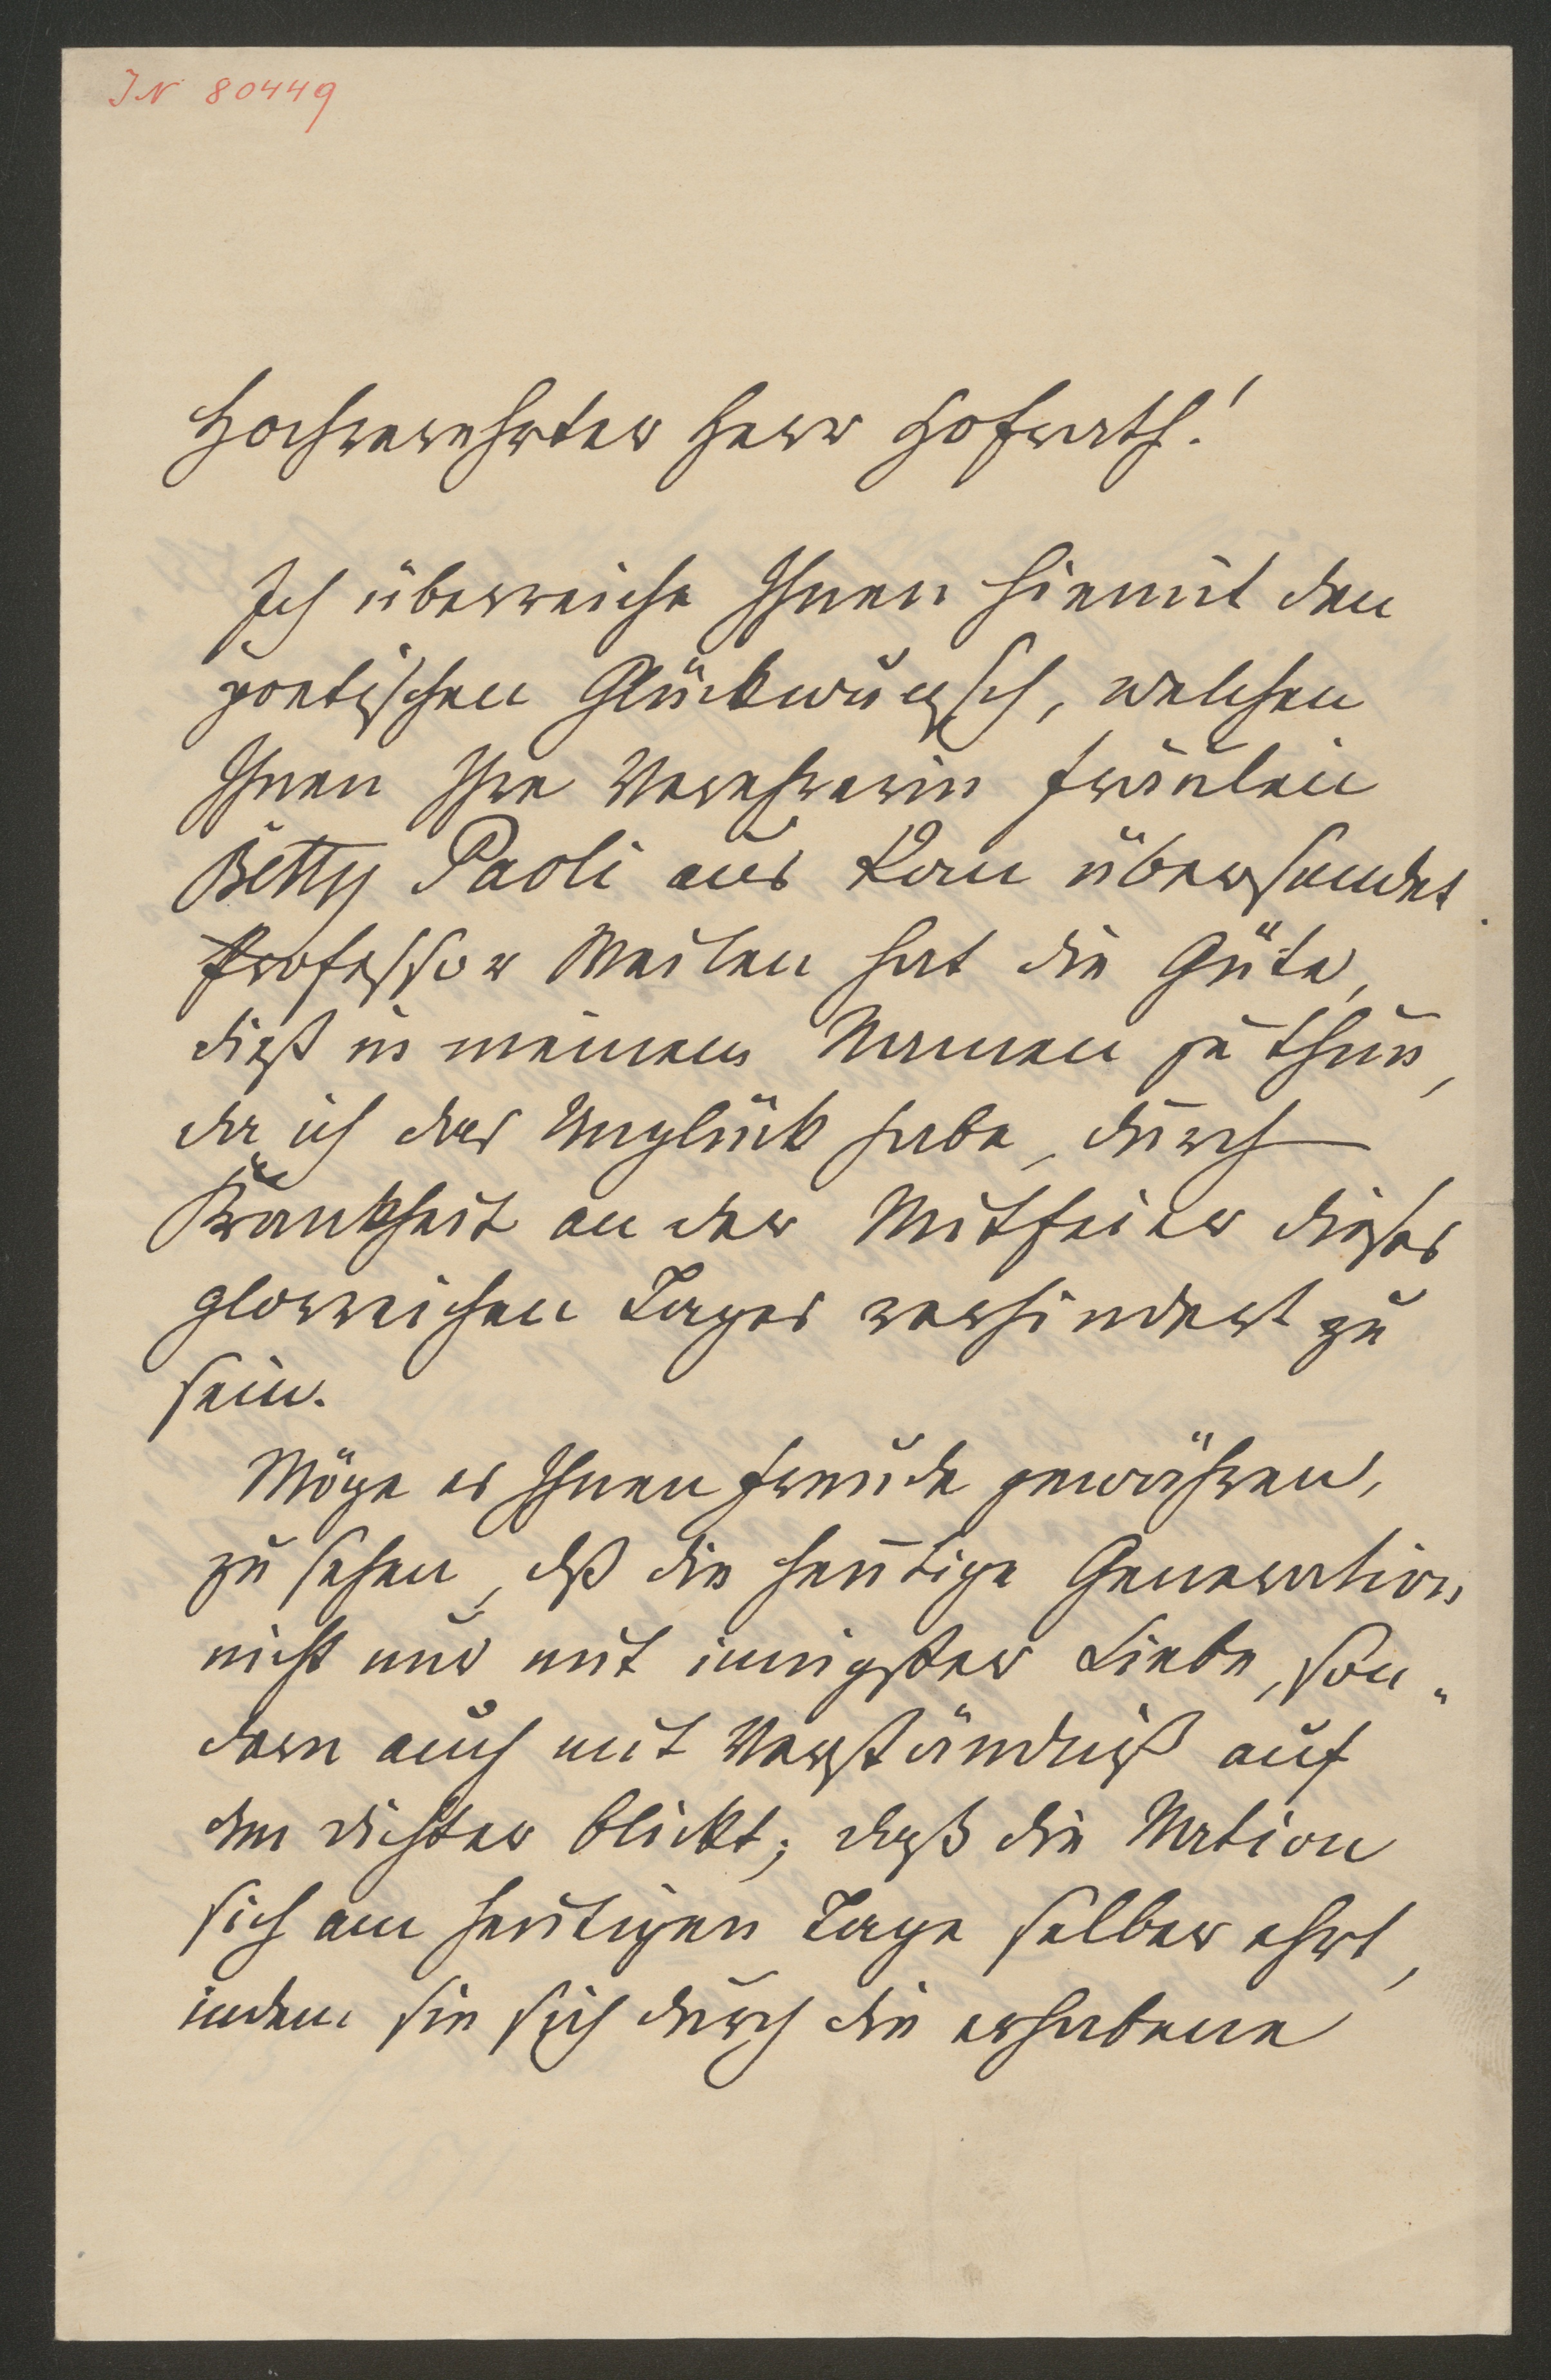 IN 80449
Hochverehrter Herr Hofrath!
Ich überreiche Ihnen hiemit den
poetischen Glückwunsch, welchen
Ihnen Ihre Verehrerin Fräulein
Betty Paoli aus Rom übersendet.
Professor Weilen hat die Güte,
dieß in meinem Namen zu thun,
da ich das Unglück habe, durch
Krankheit an der Mitfeier dieses
glorreichen Tages verhindert zu
sein.
Möge es Ihnen Freude gewähren,
zu sehen, dß die heutige Generation
nicht nur mit innigster Liebe, son„
dern auch mit Verständniß auf
den Dichter blickt; daß die Nation
sich am heutigen Tage selber ehrt,
indem sie sich durch die erhabene